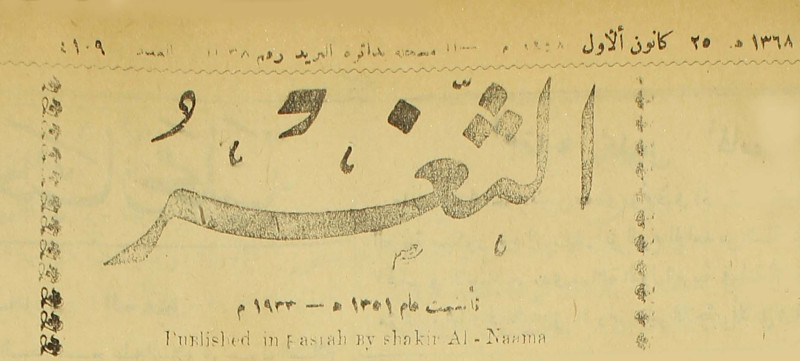 ١٣٦٨ هـ ٢٥ كانون ألاول ١٩٤٨ م مسجلة بدائرة البريد رقم ١١٣٨ العدد ٤١٠٩
الثغر
تأسست عام ١٣٥١ هـ — ١٩٣٣ م
Published in Basrah By shakir Al - Naama